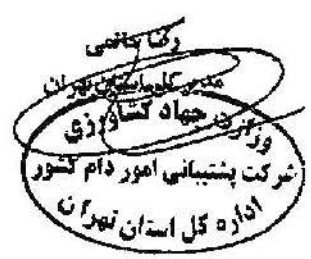 رضا حاتمی
مدیر کل استان تهران
وزارت جهاد کشاورزی
شرکت پشتیبانی امور دام کشور
اداره کل استان تهران